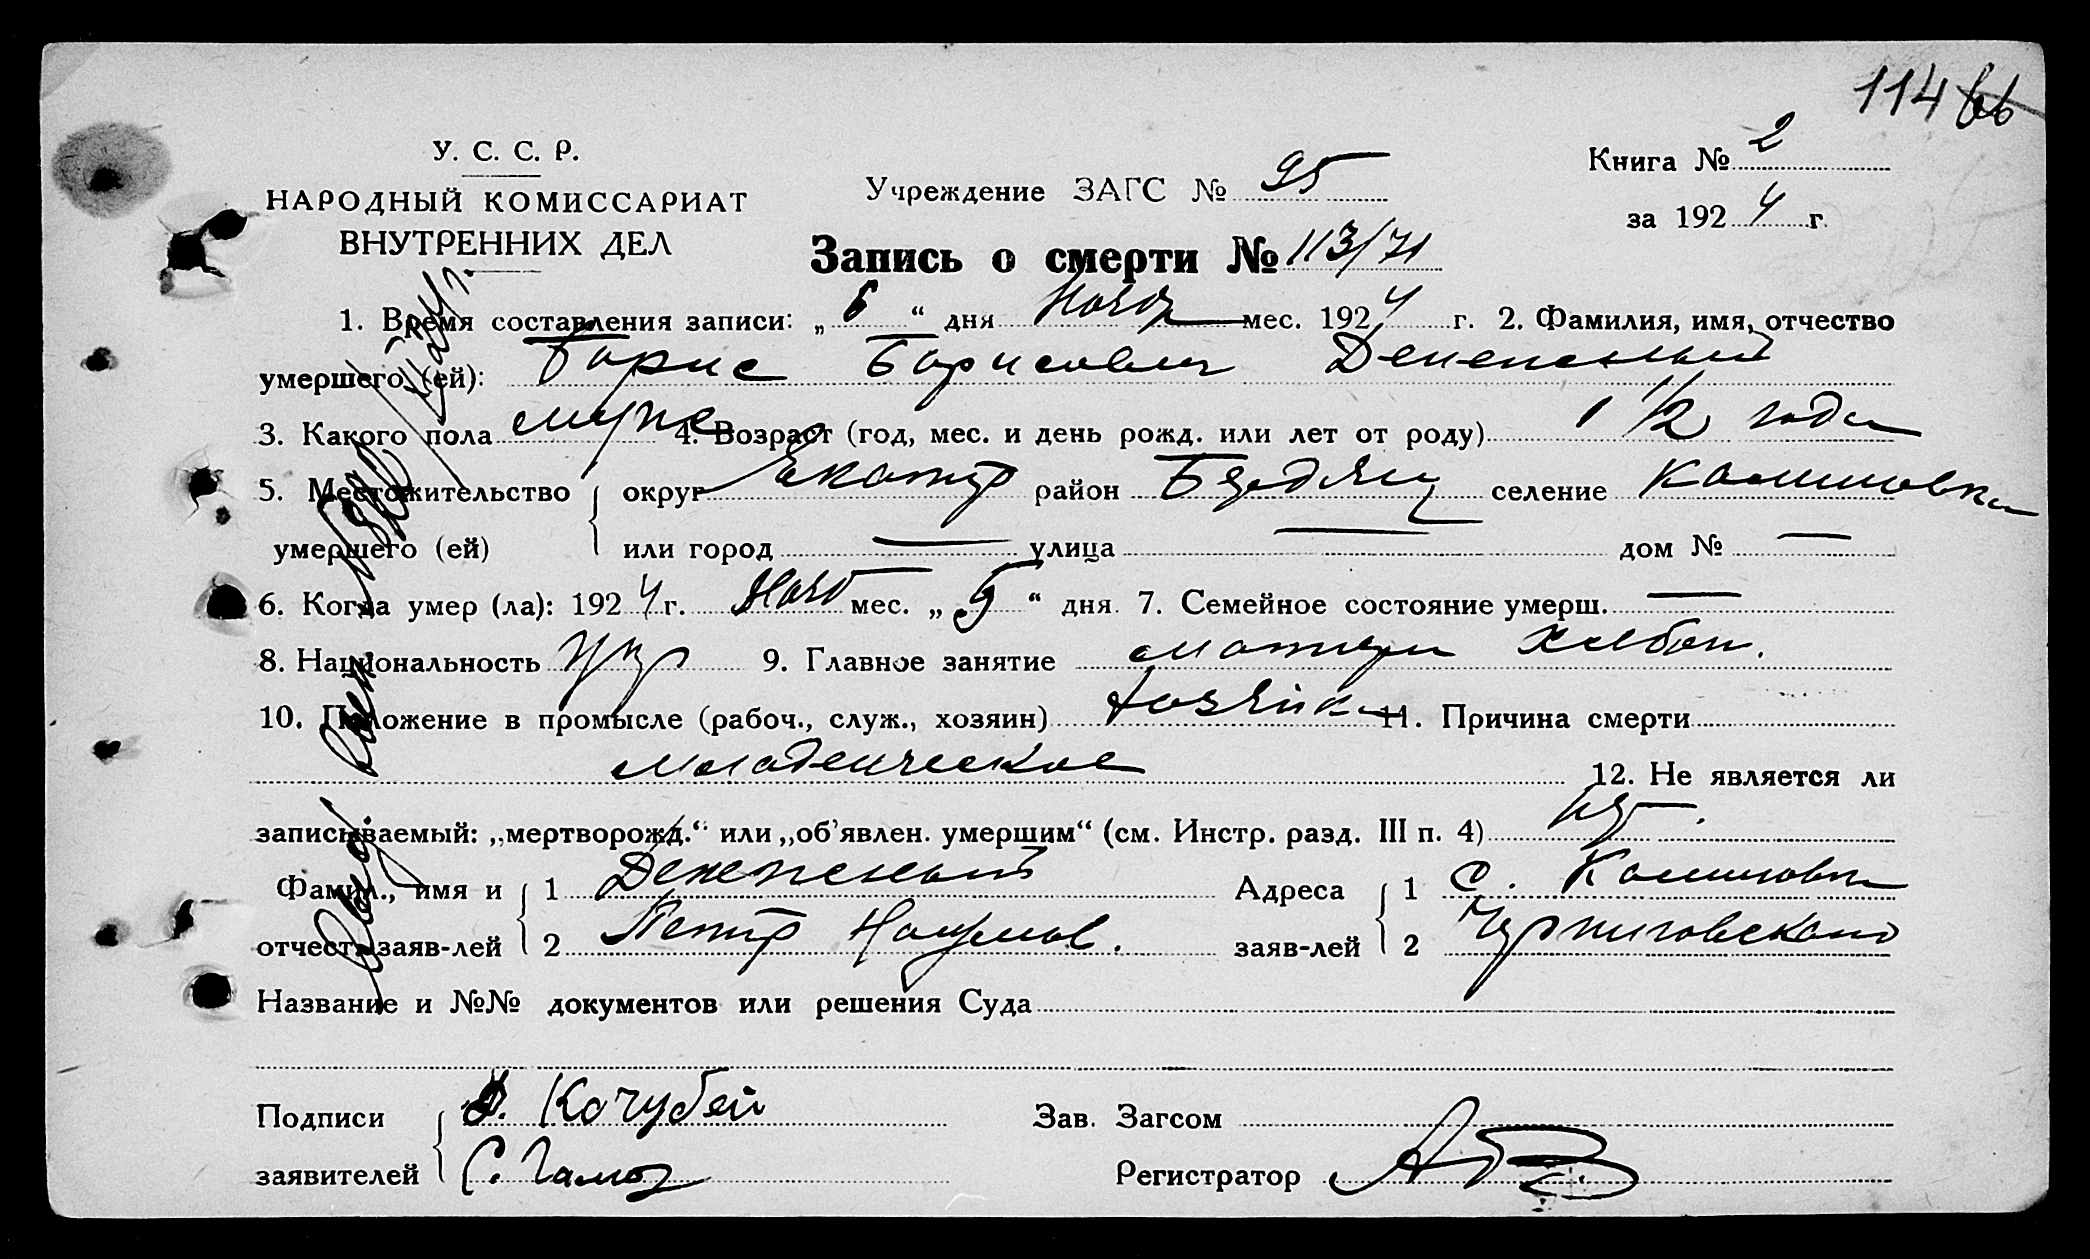 114
У. С. С. Р.
НАРОДНЫЙ КОМИССАРИАТ
ВНУТРЕННИХ ДЕЛ
Учреждение ЗАГС № 95
Книга № 2
за 1924 г.
Запись о смерти № 113/71
1. Время составления записи: „6“ дня Нояб мес. 1924 г. 2. Фамилия, имя, отчество
умершего (ей): Борис Борисович
3. Какого пола муже 4. Возраст (год, мес. и день рожд. или лет от роду) 1 1/2 года
5. Местожительство { округ Екатер район Бердян селение Калиновка
умершего (ей) или город — улица — дом № —
6. Когда умер (ла): 1924 г. Нояб мес. „5“ дня. 7. Семейное состояние умерш. —
8. Национальность Укр 9. Главное занятие матери хлебоп.
10. Положение в промысле (рабоч., служ., хозяин) хозяйка 11. Причина смерти
младенческое 12. Не является ли
записываемый: „мертворожд.“ или „об’явлен. умершим“ (см. Инстр. разд. III п. 4) нет.
Фамил., имя и { 1 Адреса { 1 с. Калиновка
отчест. заяв-лей 2 Петр Наумов. заяв-лей 2 Черниговского
Название и №№ документов или решения Суда
Подписи { Кочубей Зав. Загсом
заявителей С. Регистратор